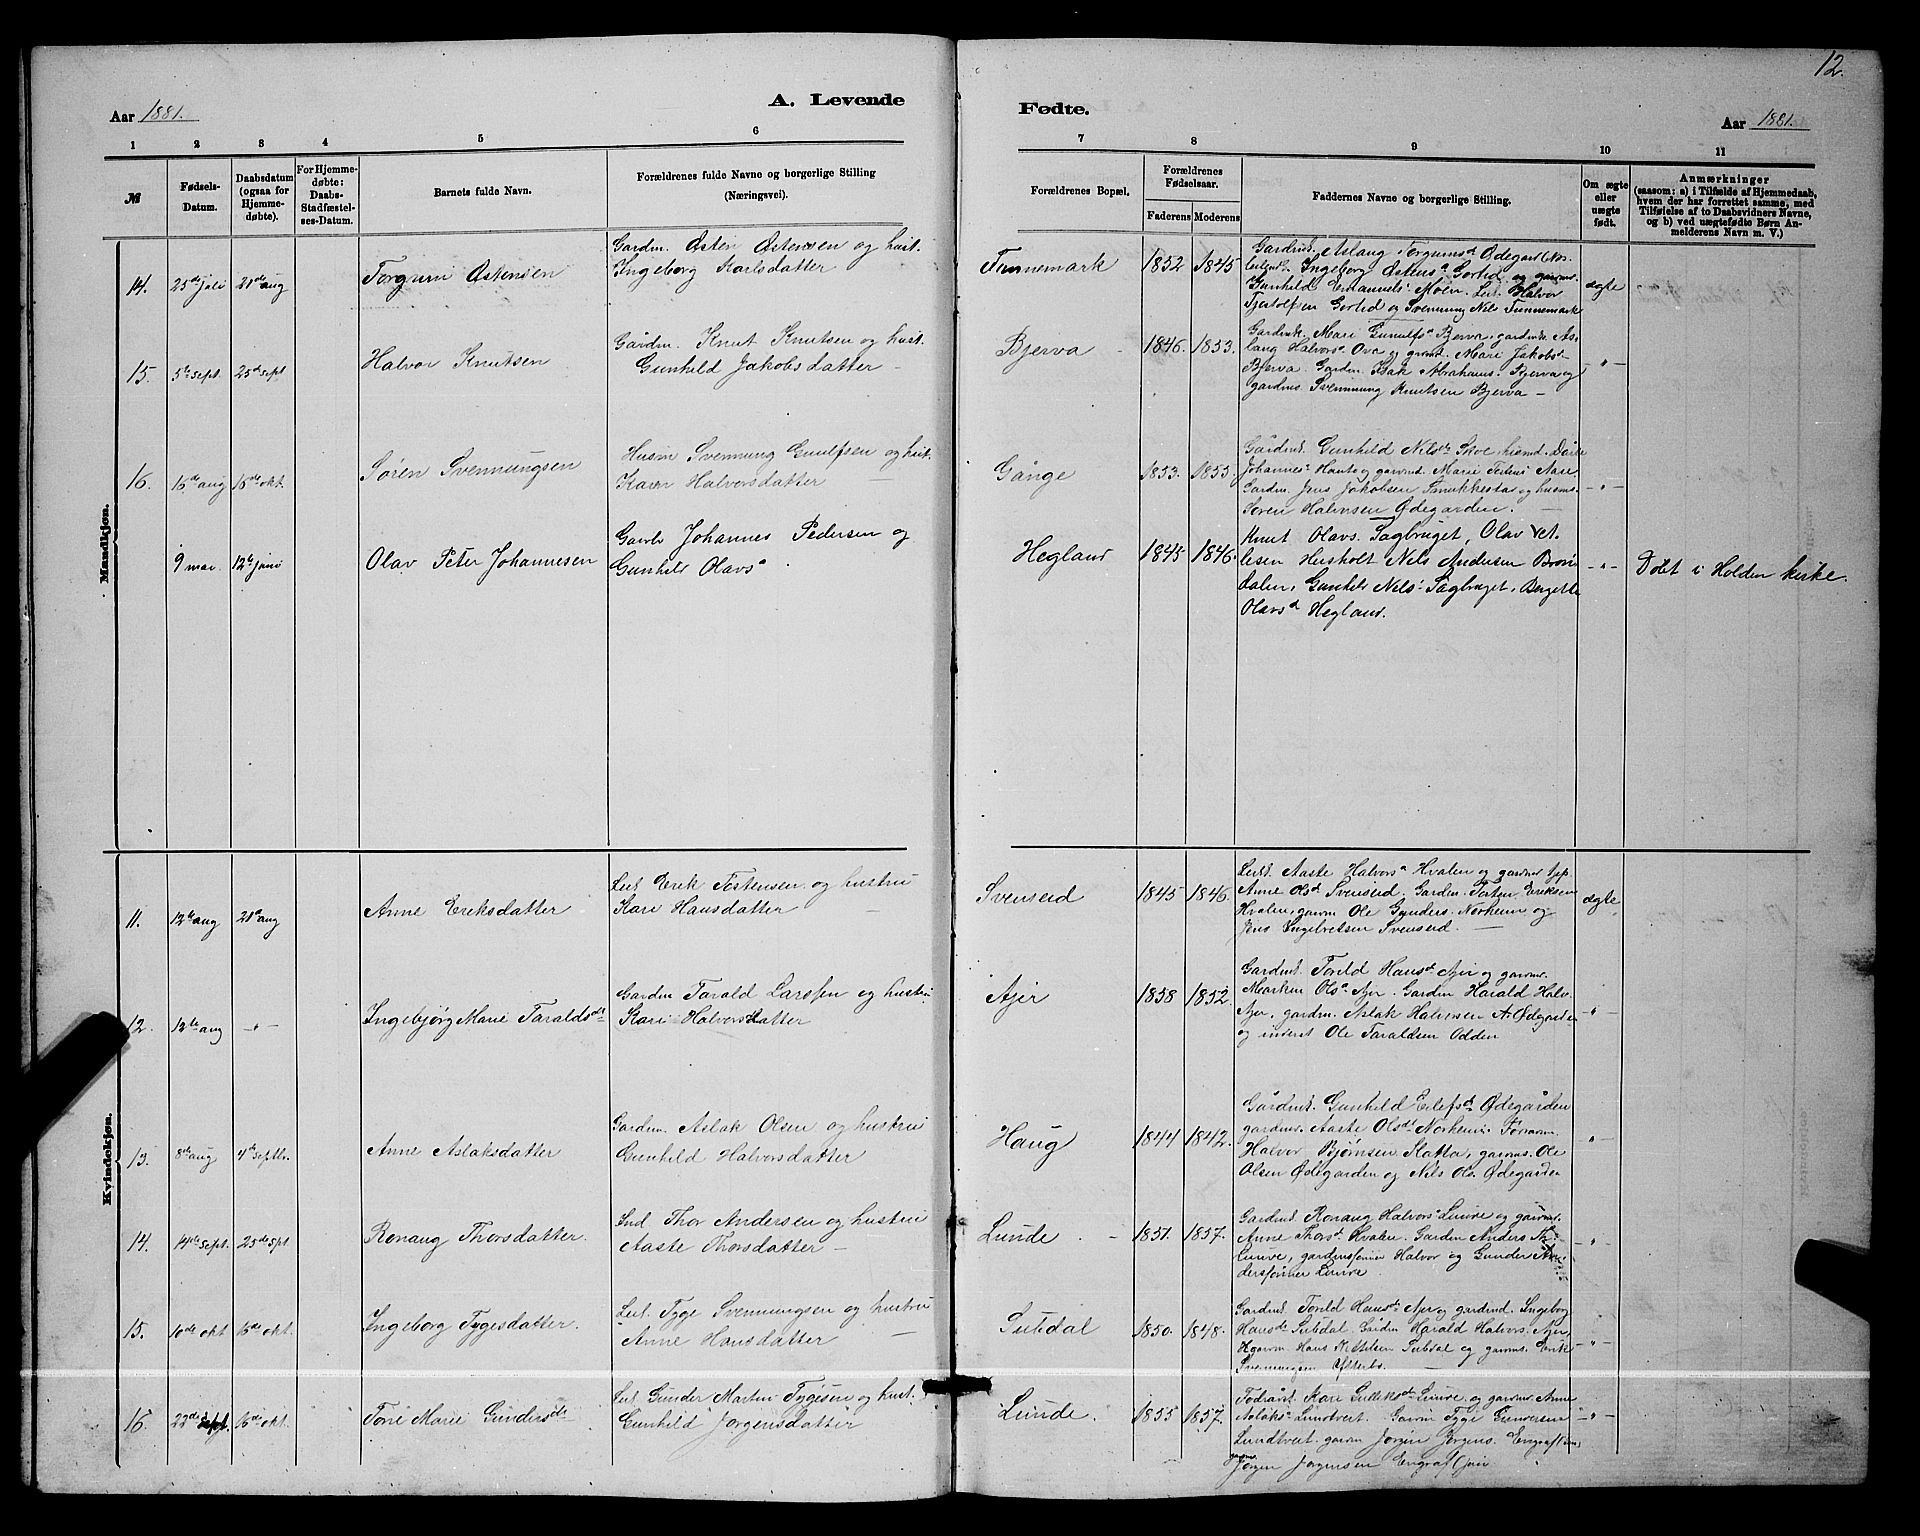 12.
Aar 1881.
A. Levende
Fødte.
Aar 1881.
1 2 3 4 5 6
7 8 9 10 11
№
Fødsels-
Datum.
Daabsdatum
(ogsaa for
Hjemme-
døbte).
For Hjemme-
døbte:
Daabs-
Stadfæstel-
ses-Datum.
Barnets fulde Navn.
Forældrenes fulde Navne og borgerlige Stilling
(Næringsvei).
Forældrenes Bopæl.
Forældrenes
Fødselsaar.
Faderens Moderens
Faddernes Navne og borgerlige Stilling.
Om ægte
eller
uægte
født.
Anmærkninger
(saasom: a) i Tilfælde af Hjemmedaab,
hvem der har forrettet samme, med
Tilføielse af to Daabsvidners Navne,
og b) ved uægtefødte Børn An-
melderens Navn m. V.)
Mandkjøn.
14. 25de juli 28de aug
Torgrum Østensen
Gardm. Østen Østensen og hust.
Ingeborg Karlsdatter
Tinnemark
1852 1845
Ingeborg Østens Gorlid og
Gunhild Emanuels Moen. Halvor
Tjostolfsen Gorlid og Svennung Nils Tinnemark
ægte
15. 5te sept. 25de sept
Halvor Knutsen
Gårdm. Knut Knutsen og hust.
Gunhild Jakobsdatter —
Bjerva
1846. 1853.
Gardmk. Mari Gunulfs Bjerva, gardmk. As-
laug Halvors Ova og Mari Jakobsd.
Bjerva. Gardm. Isak Abrahams. Bjerva og
gardms. Svennung Knutsen Bjerva —
— " —
16. 16de aug 16de okt.
Søren Svennungsen
Husm Svennung Gunulfsen og hust.
Karen Halvorsdatter —
Gånge
1853. 1855.
Gårdmk. Gunhild Nilsd. Skoe
Gardm. Jens Jakobsen Smukkestad og husms.
Søren Halvorsen Ødegarden.
— " —
9 mai 12te juni
Olav Peter Johannesen
Gaarbr Johannes Pedersen og
Gunhild Olavsd.
Hegland
1845 1846.
Knut Olavs. Sagbruget, Olav Vet-
lesen Herskolt Nils Andersen Brøn-
dalen, Gunhild Nilsd. Sagbruget, Bergette
Olavsd Hegland.
— " —
Døbt i Holden kirke.
Kvindekjøn.
11. 12te aug 28de aug
Anne Eriksdatter
Leil. Erik Tostensen og hustru
Kari Hansdatter —
Svenseid
1845 1846.
Leild. Aaste Halvorsd Hvalen og
Anne Olsd Svenseid. Gardm. Torsten Eriksen
Hvalen, Ole Gunders. Norheim og
Jens Ingebretsen Svenseid. —
ægte
12. 12te aug — " —
Ingebjørg Marie Taraldsdt.
Gardm Tarald Larssen og hustru
Kari Halvorsdatter
Ajer
1858 1852.
Gardmd. Torild Hansd. Ajer og
Marken Olsd Ajer. Gardm Harald Halv.
Ajer, gardm. Aslak Halvorsen N. Ødegarden
og inderst Ole Taraldsen Odden
— " —
13. 8de aug 4de septbr.
Anne Aslaksdatter
Gardm. Aslak Olsen og hustru
Gunhild Halvorsdatter
Haug
1844 1842.
Gårdmd. Gunhild Eilefsd. Ødegården
Aaste Olsdt. Norheim.
Halvor Bjørnsen Slatta, Ole
Olsen Ødegarden og Nils Ols. Ødegarden
— " —
14. 14de sept. 25de sept
Ronaug Thorsdatter.
Ind. Thor Andersen og hustru
Aaste Thorsdatter —
Lunde. —
1851. 1857.
Gardmd. Ronaug Halvorsd Lunde og
Anne Thorsd. Hvalen. Gardm Anders Th.
Lunde, gardmsønner Halvor og Gunder An-
derssønner Lunde.
— " —
15. 10de okt 16de okt.
Ingeborg Tygesdatter.
Leil. Tyge Svennungsen og hustru
Anne Hansdatter —
Subdal
1850. 1848.
Gardmd. Torild Hansdt. Ajer og gardmd. Ingebog
Hansdt. Subdal. Gårdm Harald Halvors. Ajer,
Hans Kittilsen Subdal og Erik
Svennungsen
— " —
16. 22de sept. 16de okt
Tone Marie Gundersdt.
Leil. Gunder Martin Tygesen og hust.
Gunhild Jørgensdatter
Lunde.
1855 1857.
Kari Gulleksdt. Lunde og Anne
Aslaks Lundtvert. Tyge Gundersen
Lundtvert. Jørgen Jørgens.
Jørgen Jørgensen
— " —